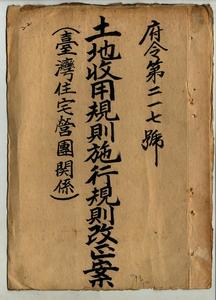 府令第二一七號
土地收用規則施行規則改正案
(臺灣住宅營團關係)